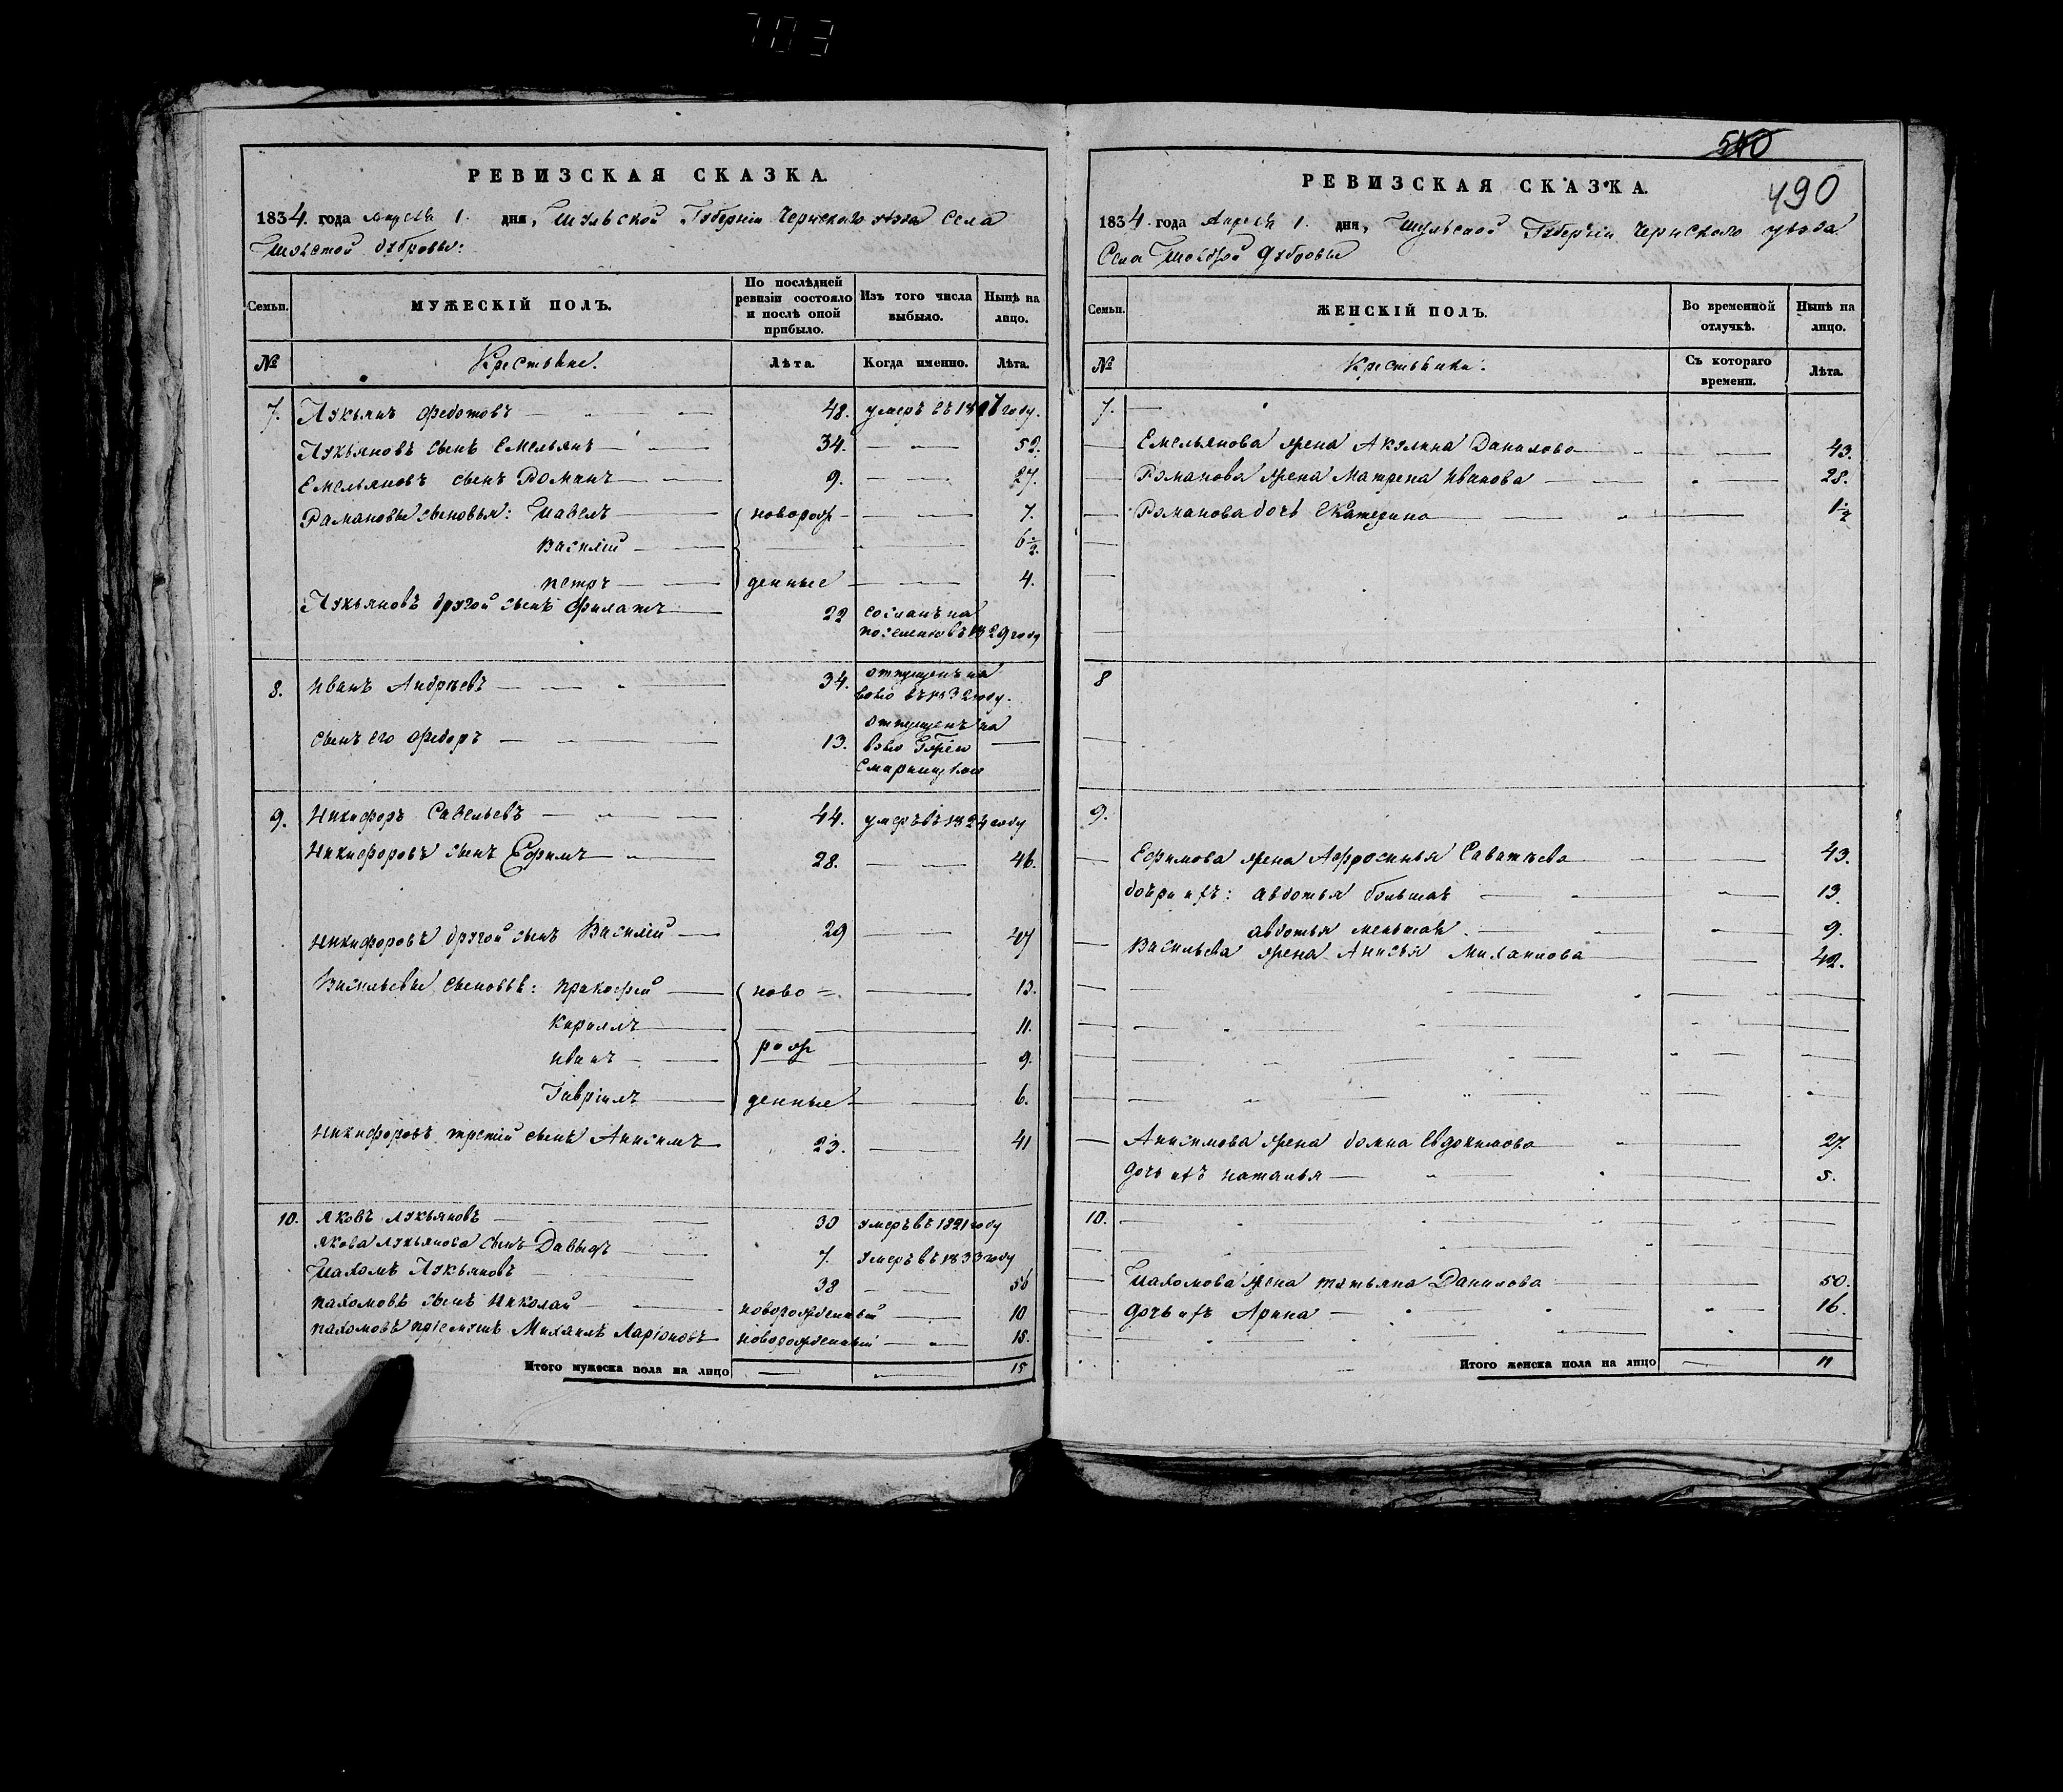 703
РЕВИЗСКАЯ СКАЗКА.
1834. года Апреля 1. дня, Тульской Губерніи Чернскаго уезда Села
Толстой дубровы:
Семьи.
МУЖЕСКІЙ ПОЛЪ.
По послѣдней ревизіи состояло и послѣ оной прибыло.
Изъ того числа выбыло.
Нынѣ на лицо.
№ Крестьяне. Лѣта. Когда именно. Лѣта.
7. Лукьянъ Федотовъ 48. умеръ въ 18 7 году.
Лукьяновъ сынъ Емельянъ 34. 52.
Емельяновъ сынъ Романъ 9. 27.
Рамановы сыновья: Павелъ новорож 7.
Василій 6½.
петръ денные 4.
Лукьяновъ другой сынъ Филатъ 22 сосланъ на
поселение въ 1829 году
8. Иванъ Андреевъ 34. отпущенъ на
волю въ 1832 году.
сынъ его Федоръ 13. отпущенъ на
волю
9. Никифоръ Савельевъ 44. умеръ въ 1824 году
Никифоровъ сынъ Ефимъ 28. 46.
Никифоровъ другой сынъ Василій 29 47
Васильевы сыновьѣ: Пракофей ново= 13.
Кирилъ 11.
Иванъ рож 9.
Гаврилъ денные 6.
Никифоровъ третій сынъ Анисимъ 23. 41
10. Яковъ Лукьяновъ 30 умеръ въ 1821 году
Якова Лукьянова сынъ Давыдъ 7. умеръ въ 1833 году
Пахомъ Лукьяновъ 38 56
пахомовъ сынъ Николай новорожденный 10
пахомовъ пріемышъ Михаилъ Ларіоновъ новорожденный 15.
Итого мужеска пола на лицо 15
540
490
РЕВИЗСКАЯ СКАЗКА.
1834. года Апреля 1. дня, Тульской Губерніи Чернскаго уезда
Села Толстой Дубровы
Семьи.
ЖЕНСКІЙ ПОЛЪ.
Во временной отлучкѣ.
Нынѣ на лицо.
№ Крестьянки. Съ котораго времени. Лѣта.
7.
Емельянова жена Акулина Данилова 43.
Романова жена Матрена Иванова 28.
Романова дочь Екатерина 1½
8
9.
Ефимова жена Афросинья Саватеева 43.
дочри ихъ: авдотья большая 13.
авдотья меньшая 9.
Васильева жена Анисья Михаилова 42.
Анисимова жена домна Евдокимова 27.
Дочь ихъ наталья 5.
10.
Пахомова жена татьяна Данилова 50.
Дочь ихъ Арина 16.
Итого женска пола на лицо 11